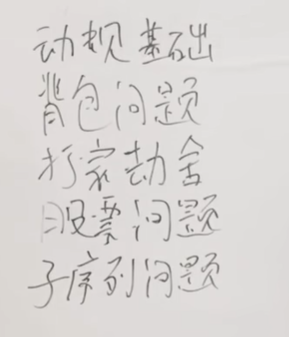 动规基础
背包问题
打家劫舍
股票问题
子序列问题